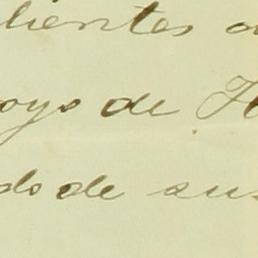 lientes
oys de
ds de sus